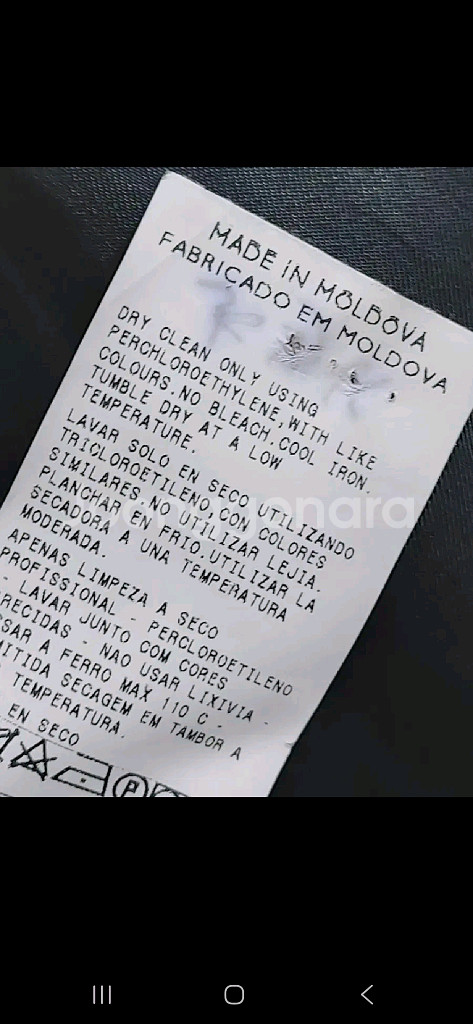 MADE iN MOLDOVA
FABRiCADO EM MOLDOVA
DRY CLEAN ONLY USING
PERCHLOROETHYLENE,WITH LIKE
COLOURS.NO BLEACH.COOL IRON.
TUMBLE DRY AT A LOW
TEMPERATURE.
LAVAR SOLO EN SECO UTILIZANDO
TRICLOROETILENO,CON COLORES
SIMILARES.NO UTILIZAR LEJIA.
PLANCHAR EN FRIO.UTILIZAR LA
SECADORA A UNA TEMPERATURA
MODERADA.
APENAS LIMPEZA A SECO
PROFISSIONAL - PERCLOROETILENO
- LAVAR JUNTO COM CORES
- NAO USAR LIXIVIA -
A FERRO MAX 110 C .
SECAGEM EM TAMBOR A
TEMPERATURA.
EN SECO
P